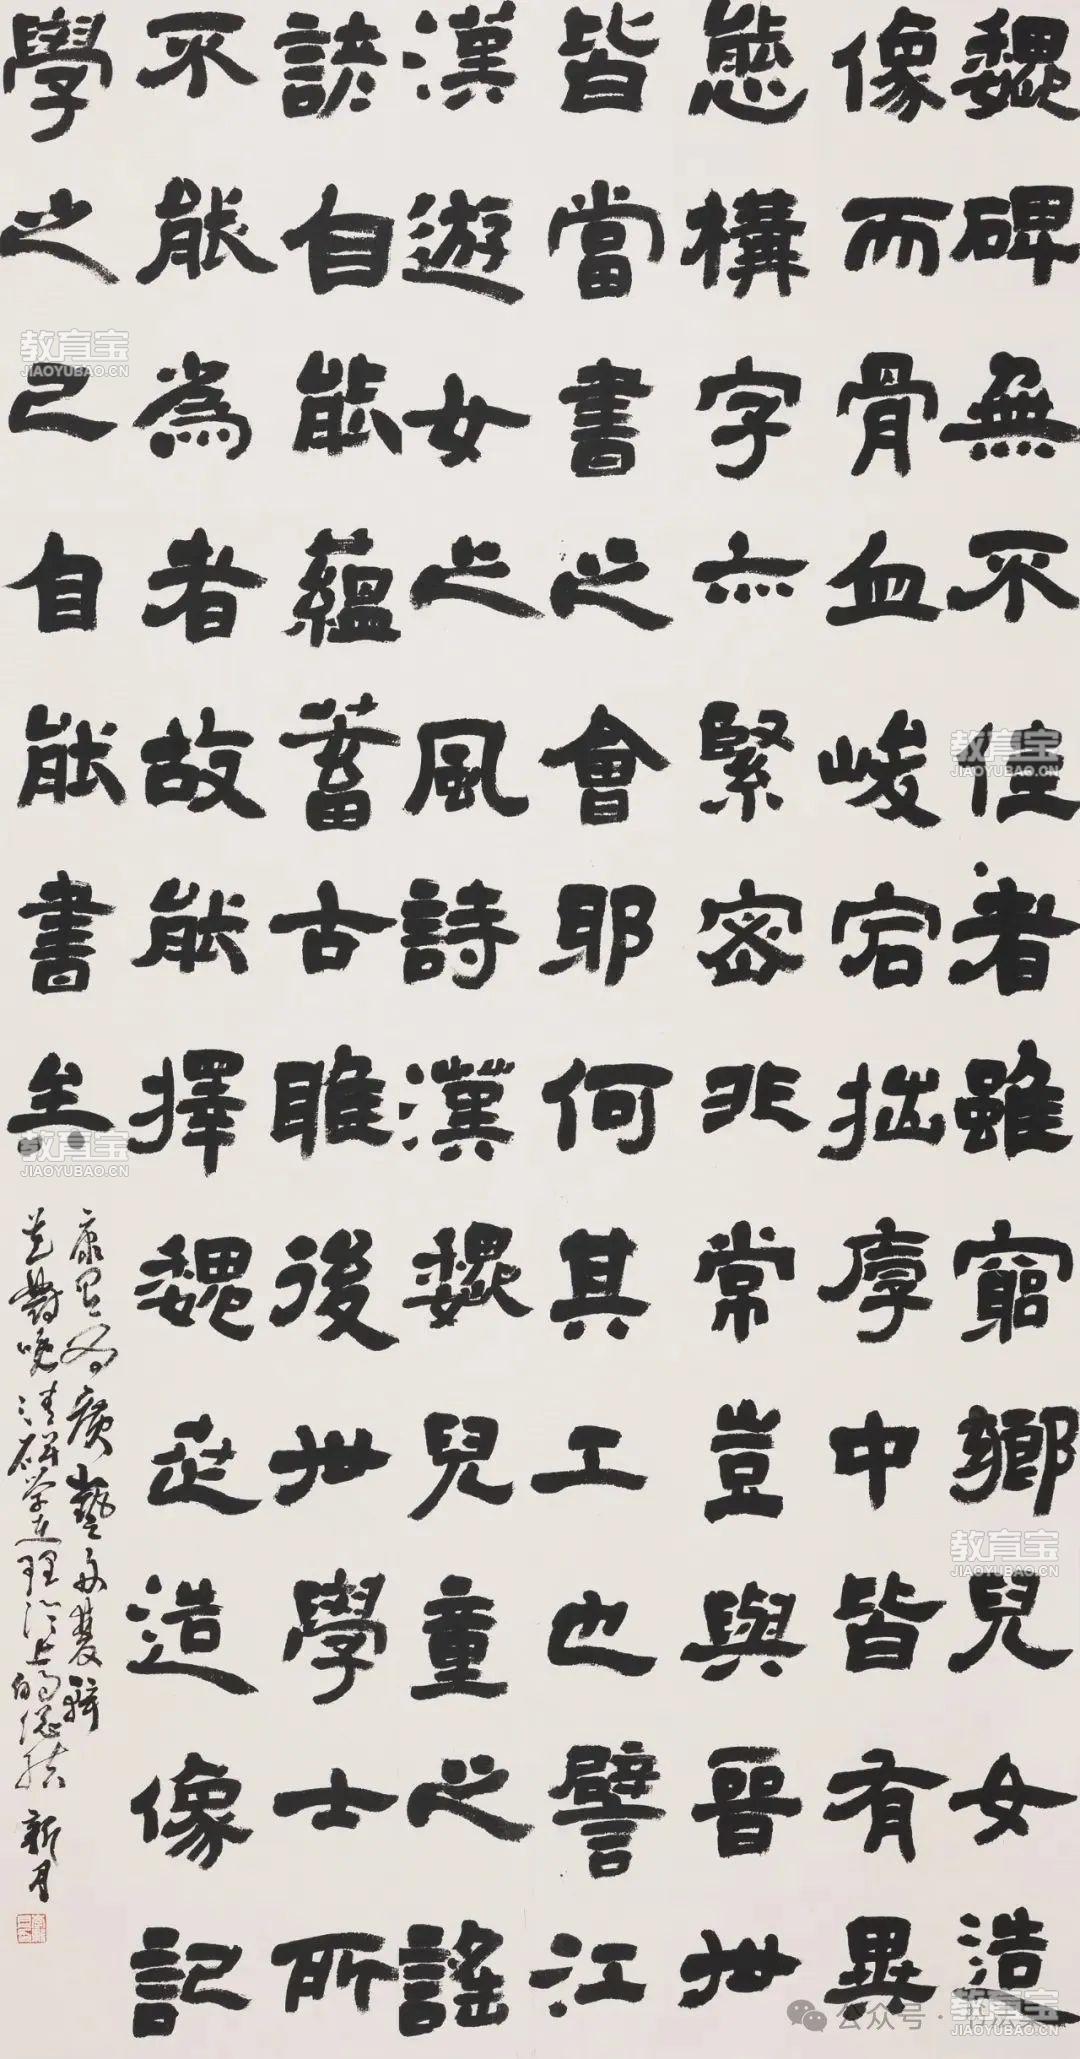 魏碑無不佳者雖窮鄉兒女造
像而骨血峻宕拙厚中皆有異
態構字亦緊密非常豈與晉世
皆當書之會耶何其工也譬江
漢遊女之風詩漢魏兒童之謠
諺自能蘊蓄古雅後世學士所
不能為者故能擇魏世造像記
學之已自能書矣
康有为廣藝舟雙楫
是對晚清碑学在理论上的总结 新月
教育宝
JIAOYUBAO.CN
教育宝
JIAOYUBAO.CN
教育宝
JIAOYUBAO.CN
教育宝
JIAOYUBAO.CN
教育宝
JIAOYUBAO.CN
公众号